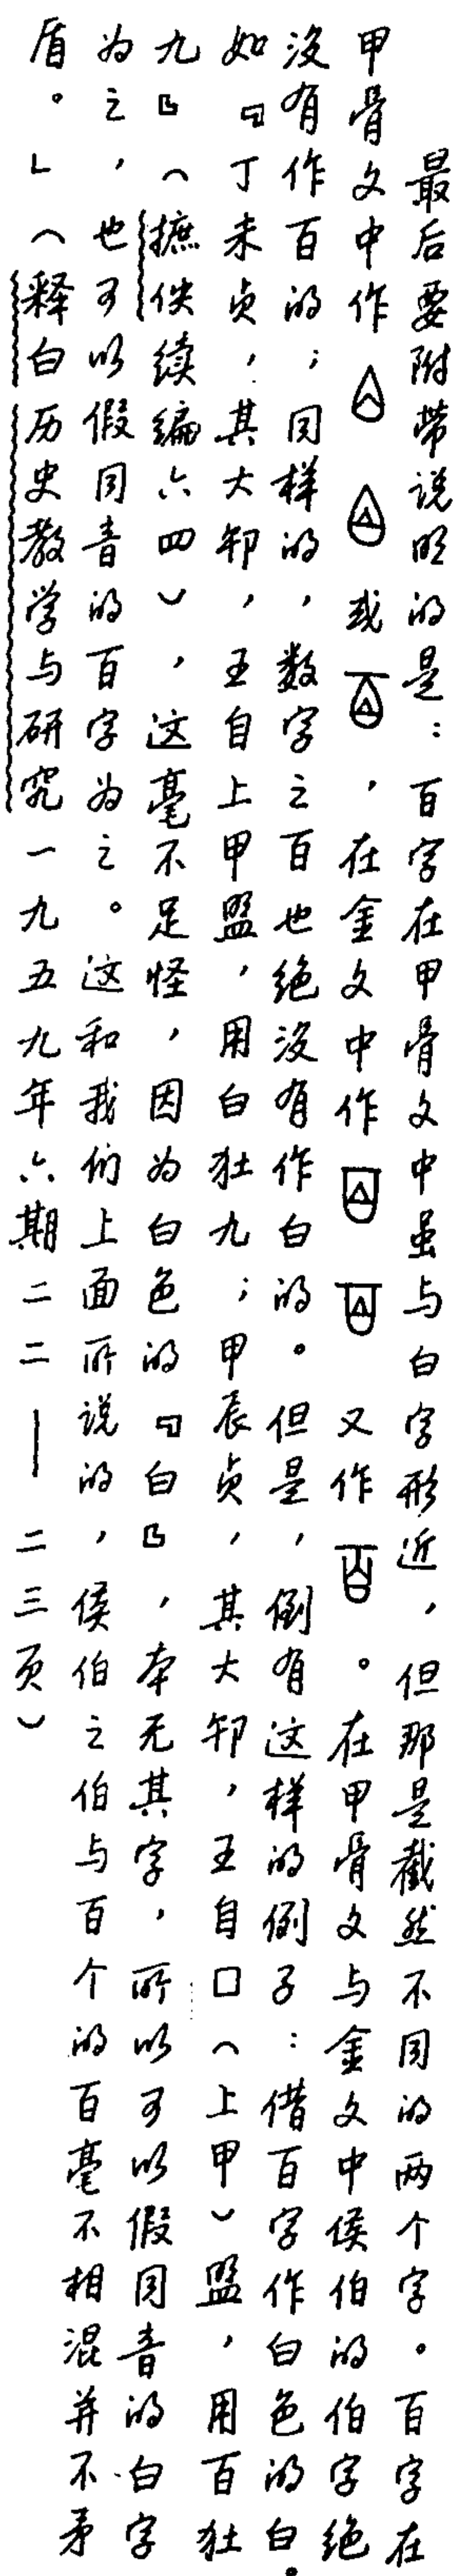 最后要附带说明的是：百字在甲骨文中虽与白字形近，但那是截然不同的两个字。百字在
甲骨文中作 或 ，在金文中作 又作 。在甲骨文与金文中侯伯的伯字绝
没有作百的；同样的，数字之百也绝没有作白的。但是，倒有这样的例子：借百字作白色的白。
如『丁未贞，其大御，王自上甲盟，用白𤘘九；甲辰贞，其大御，王自口（上甲）盟，用百𤘘
九』（摭佚续编六四），这毫不足怪，因为白色的『白』，本无其字，所以可以假同音的白字
为之，也可以假同音的百字为之。这和我们上面所说的，侯伯之伯与百个的百毫不相混并不矛
盾。」（释白历史教学与研究一九五九年六期二二——二三页）